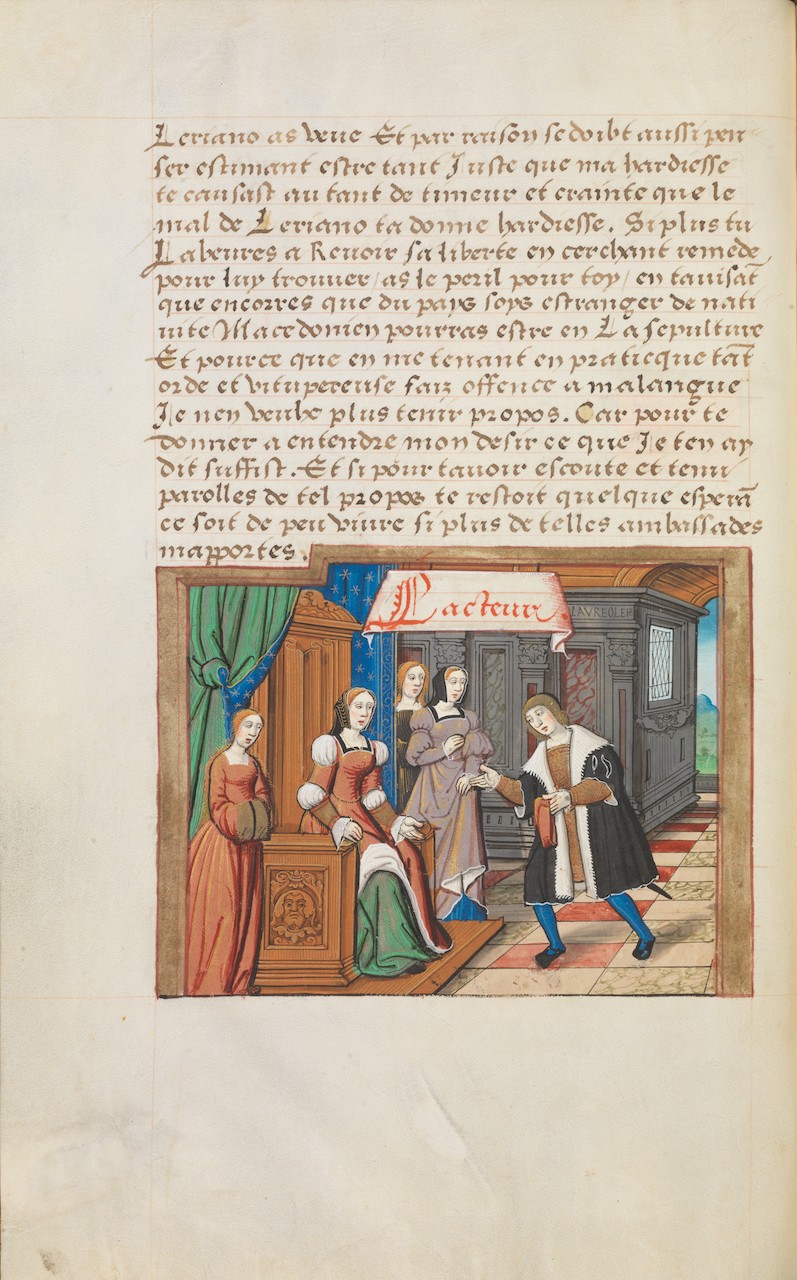 Leriano as veue Et par raison se doibt aussi pen
ser estimant estre tant Juste que ma hardiesse
te causast autant de timeur et crainte que le
mal de Leriano ta donne hardiesse. Si plus tu
Labeures a Renoir sa liberte en cerchant remede
pour luy trouver / as le peril pour toy / en tavisāt
que encorres que du pays soys estranger de nati
vite Macedonien pourras estre en La sepulture
Et pource que en me tenant en practicque tāt
orde et vitupereuse faiz offence a ma langue
Je nen veulx plus tenir propos. Car pour te
donner a entendre mon desir ce que Je ten ay
dit suffist. Et si pour tavoir escoute et tenu
parolles de tel propos te restoit quelque esperā
ce soit de peu vivre si plus de telles ambassades
mapportes.
Lacteur
LAVREOLE